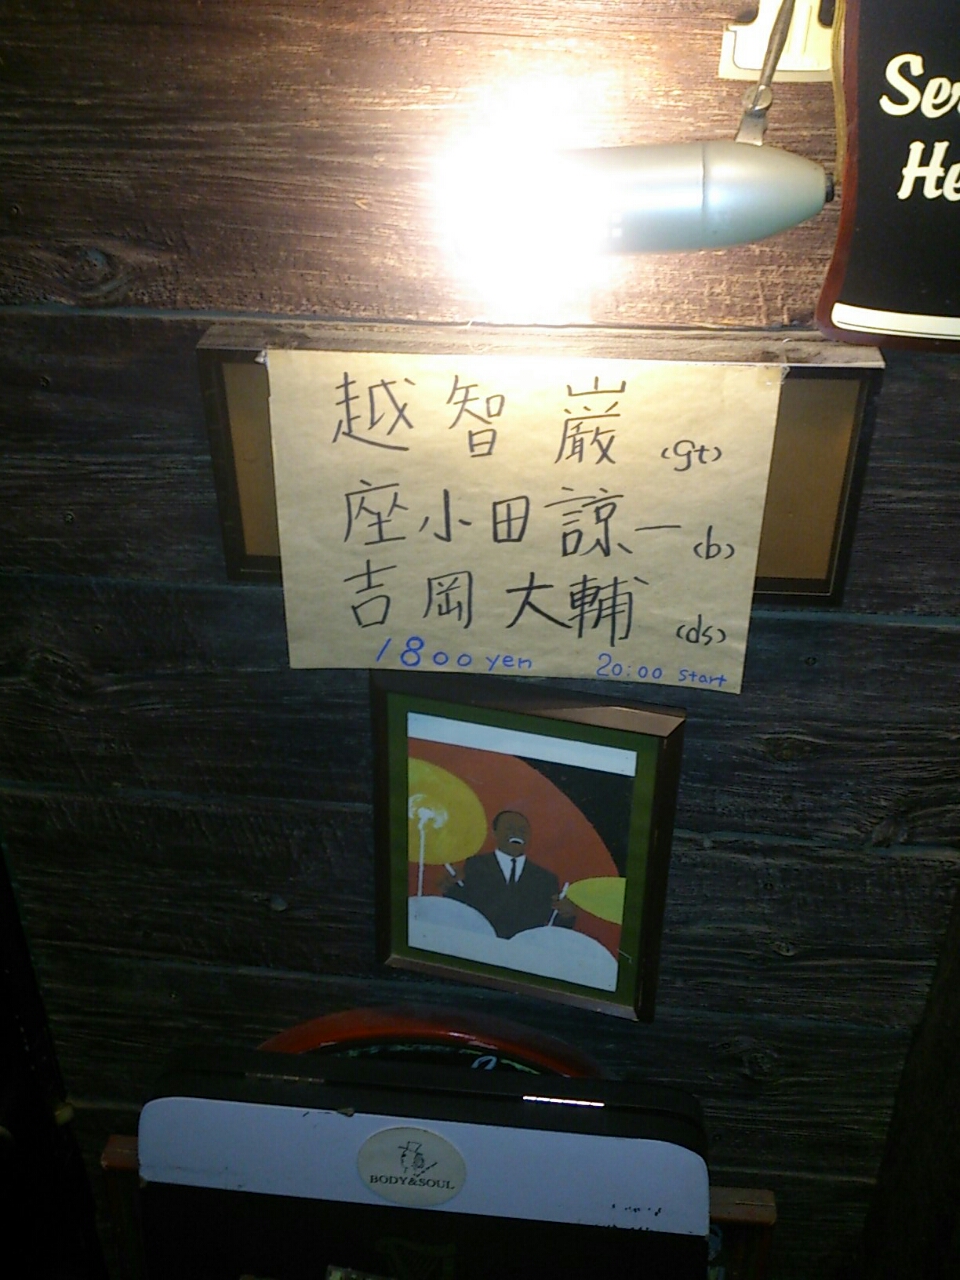 Ser
He
越智 巌 (gt)
座小田諒一 (b)
吉岡大輔 (ds)
1800 yen 20:00 start
BODY&SOUL